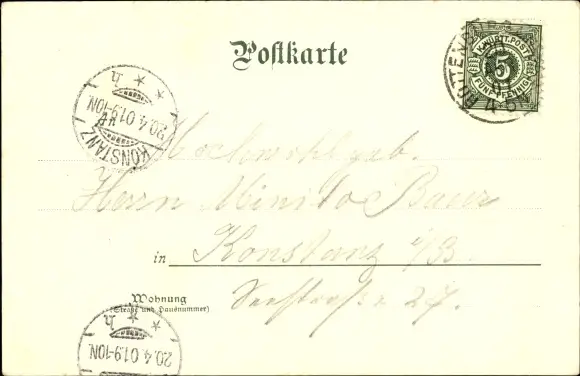 Postkarte
K. WÜRTT. POST
5
FÜNF PFENNIG
KONSTANZ
20.4.01.9-10N.
* * h
Hochwohlgeb.
Herrn Bauer
in Konstanz a/B.
Wohnung
(Straße und Hausnummer)
Seestraße 27.
* * h
20.4.01.9-10N.